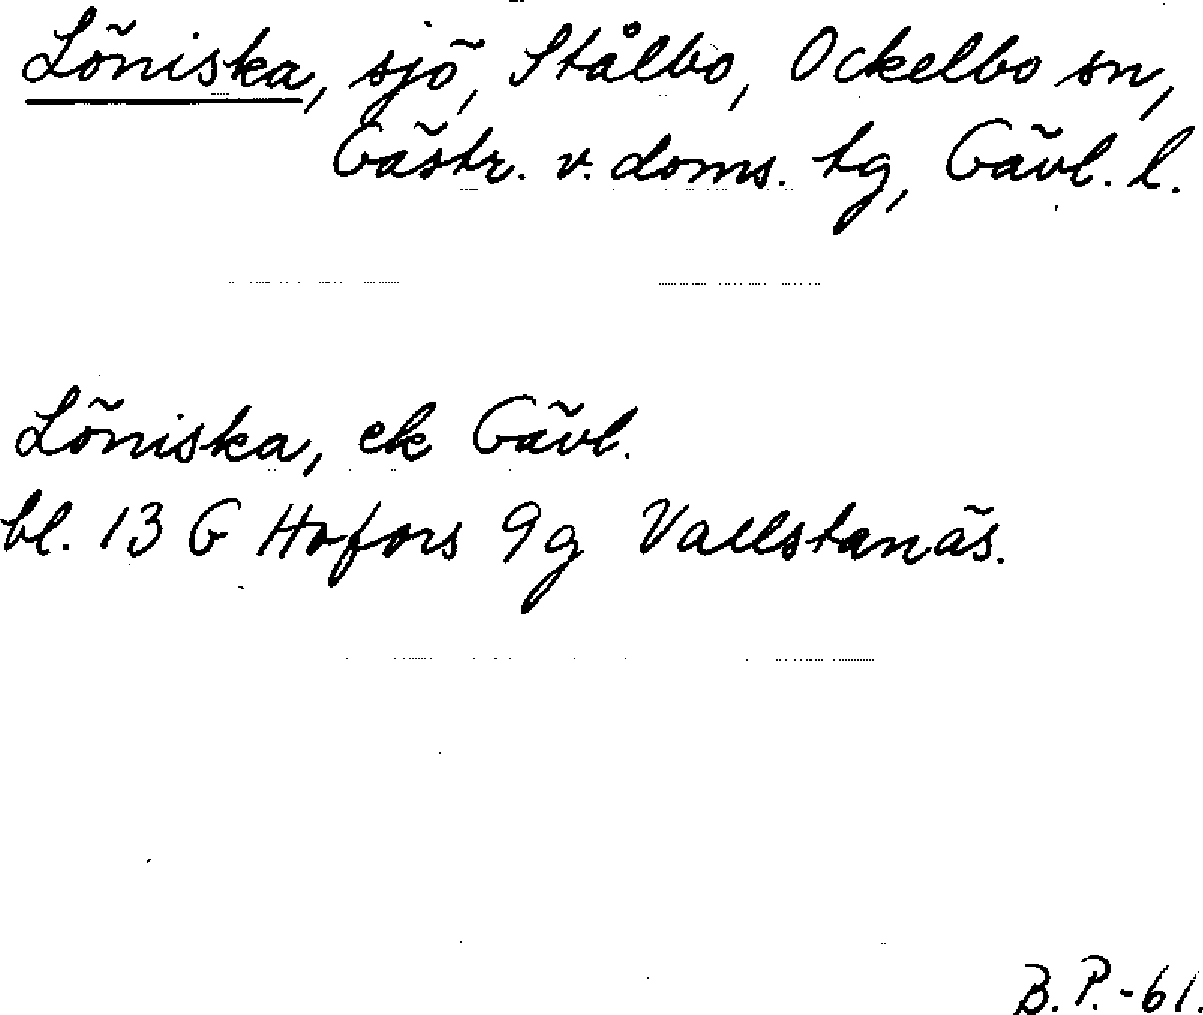 Löniska, sjö, Stålbo, Ockelbo sn,
Gästr. v. doms. tg, Gävl. l.
Löniska, ek Gävl.
bl. 13 G Hofors 9g Vallstanäs.
B. P. -61.